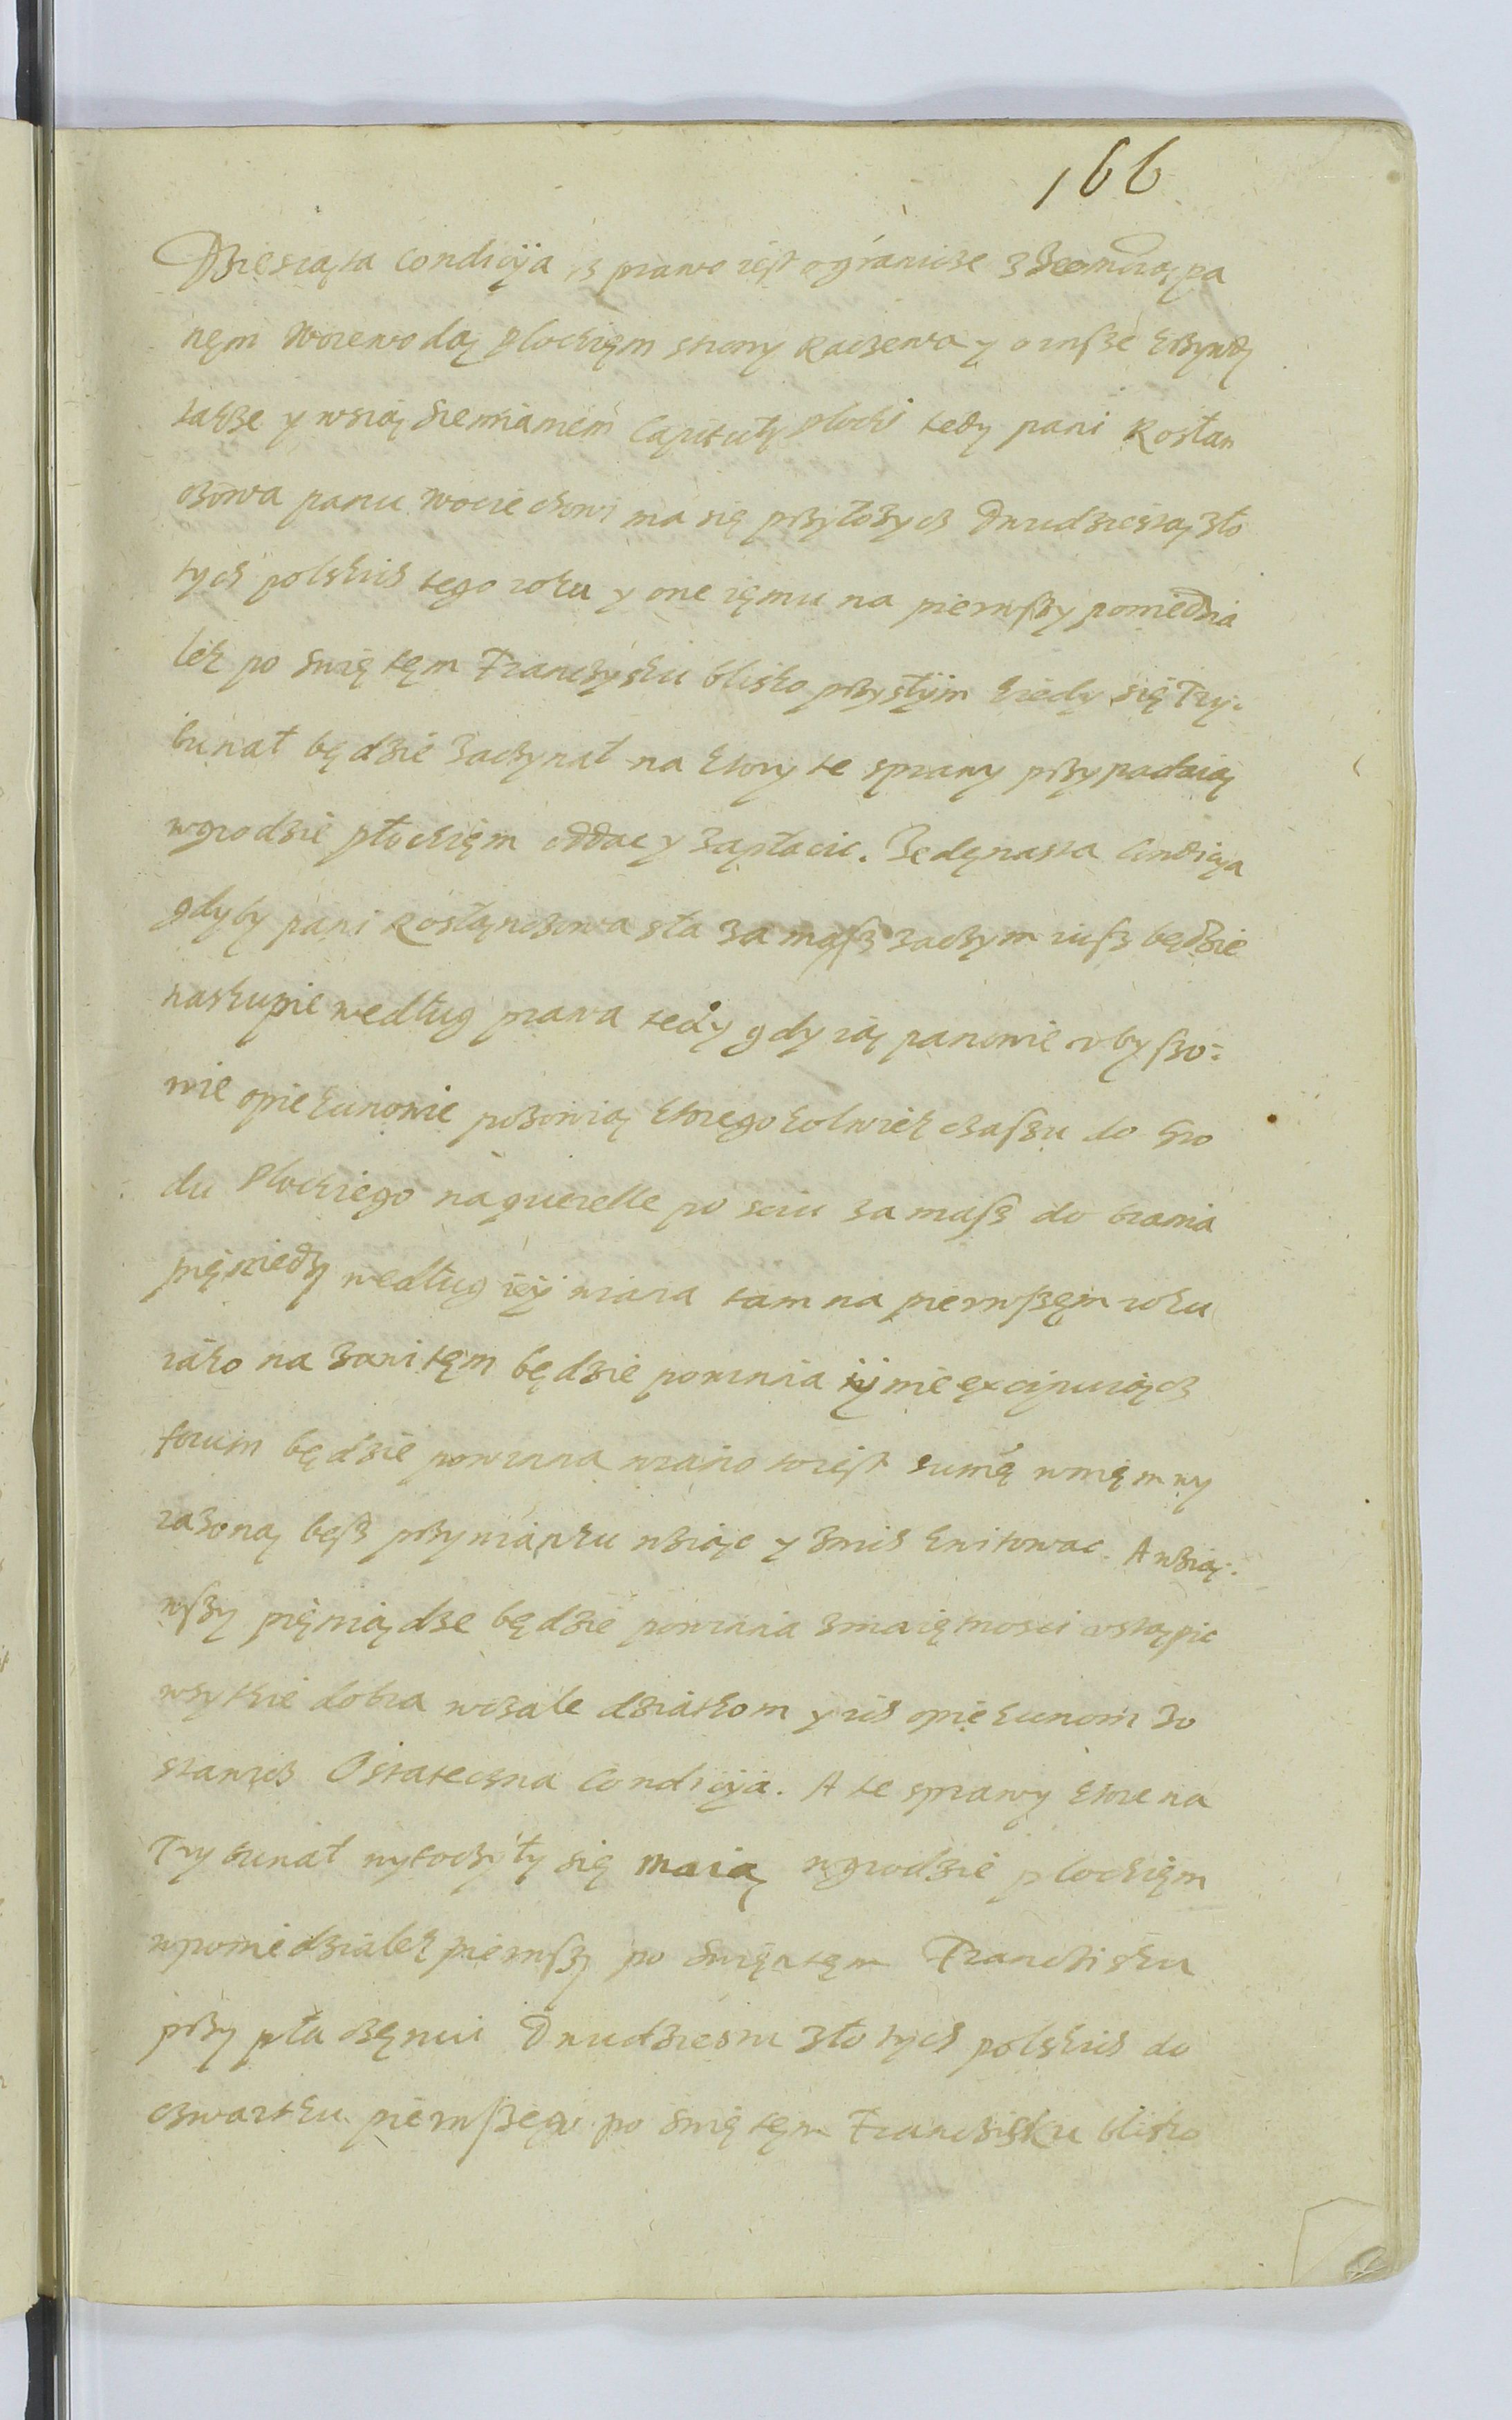 166
Dziesiąta condicÿa is prawo iest ogranicze z Jeomcią pa
nęm Woiewodą plockięm strony Raczewa y o insze krzywdÿ
także y wsią Siemianem Capituły plocki tedy pani Kostan
czowa panu Wociechowi ma się przyłozych Dwudziestą zło
tych polskich tego roku y oneięmu na pierwszy poniedzia
lek po Swiętęm Franczysku blisko przysłÿm kiedy się Try-
bunał będzie zaczynał na ktory te sprawy przypadaią
wgrodzie płockięm oddac y zapłacic. Jedęnasta Condicya
gdyby pani Kostąnczowa sła za mąsz zaczym iusz będzie
naskupie według prawa tedy gdy ią panowie
wie opiekunowie pozowią ktoregokolwiek czaszu do Gro
du Plockiego na querelle po sciu za mąsz do brania
pięniedzy według ięÿ wiana tam na pierwszęm roku
iako na zawitęm będzie powinna nie excipuiącz
forum będzie powinna wiano to iest sumę wnięm wy
razoną bęsz przywianku wziąc y znich kwitowac. A wzią-
wszy pięniądze będzie powinna zmaiętnosci ustąpic
wszytkie dobra wczale dziatkom y ich opiekunom zo
stawicz Ostateczna Condicÿa. A te sprawy ktore na
Trybunał wytoczyły się maią wgrodzie plockięm
wponiedzialek pierwszy po Swiętęm Franciszku
przy płaczęniu Dwudziestu złotych polskich do
czwartku pierwszego po Swiętęm Francziszku blisko